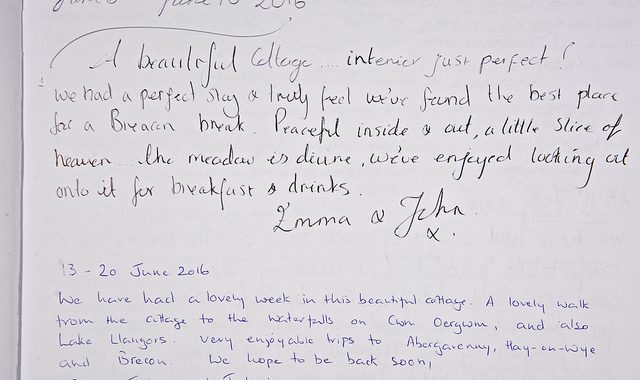 June 10 2016
A beautiful Cottage.... interior just perfect!
we had a perfect stay & truly feel we've found the best place
for a Brearon break. Peaceful inside & out, a little slice of
heaven... the meadow is divine, we've enjoyed looking out
onto it for breakfast & drinks.
Emma & John.
x.
13 - 20 June 2016
We have had a lovely week in this beautiful cottage. A lovely walk
from the cottage to the waterfalls on Cwn Oergwm, and also
Lake Llangors. Very enjoyable trips to Abergavenny, Hay-on-Wye
and Brecon. We hope to be back soon,